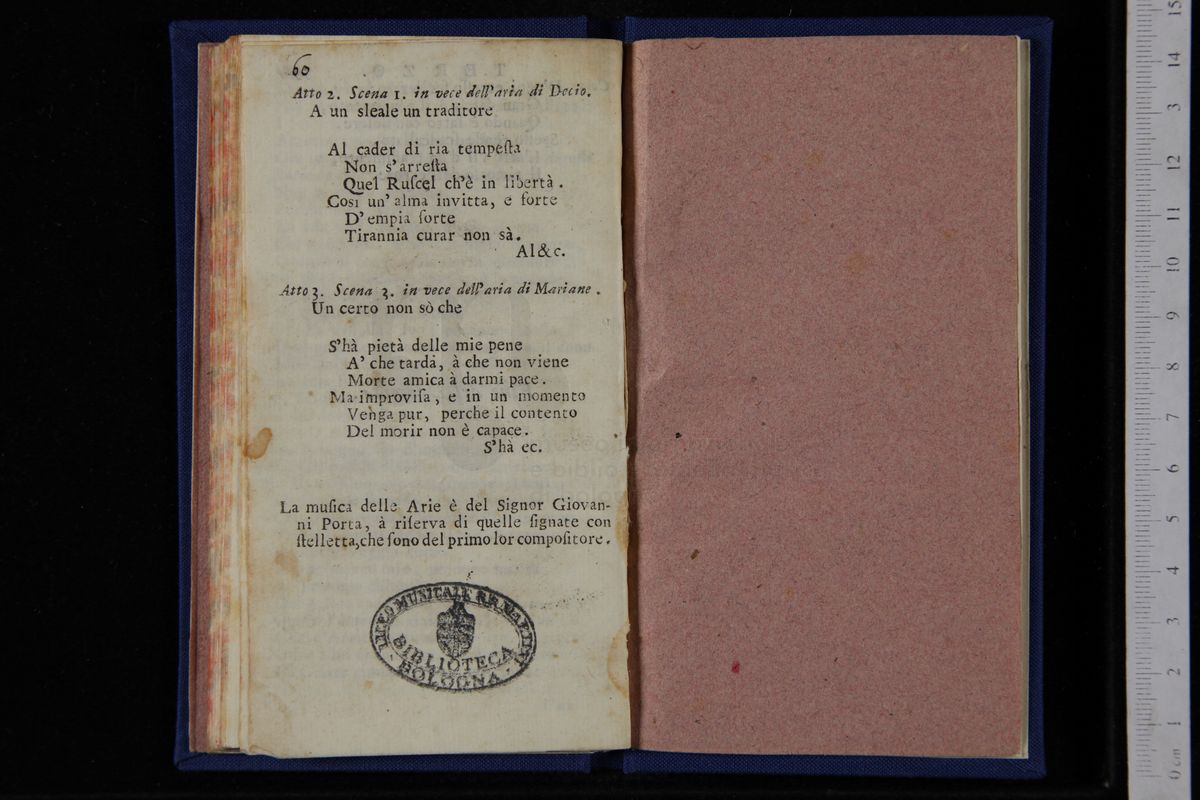 60
Atto 2. Scena 1. in vece dell'aria di Decio.
A un sleale un traditore
Al cader di ria tempeſta
Non s'arreſta
Quel Ruſcel ch'è in libertà.
Così un' alma invitta, e forte
D' empia ſorte
Tirannia curar non sà.
Al &c.
Atto 3. Scena 3. in vece dell'aria di Mariane.
Un certo non sò che
S'hà pietà delle mie pene
A' che tarda, à che non viene
Morte amica à darmi pace.
Ma improviſa, e in un momento
Venga pur, perche il contento
Del morir non è capace.
S'hà ec.
La muſica delle Arie è del Signor Giovan-
ni Porta, à riſerva di quelle ſignate con
ſtelletta, che ſono del primo lor compoſitore.
LICEO MUSICALE G.B. MARTINI
BIBLIOTECA
BOLOGNA
0 cm 1 2 3 4 5 6 7 8 9 10 11 12 13 14 15